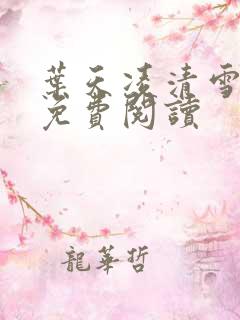 葉天凌清雪
免費閱讀
龍華哲